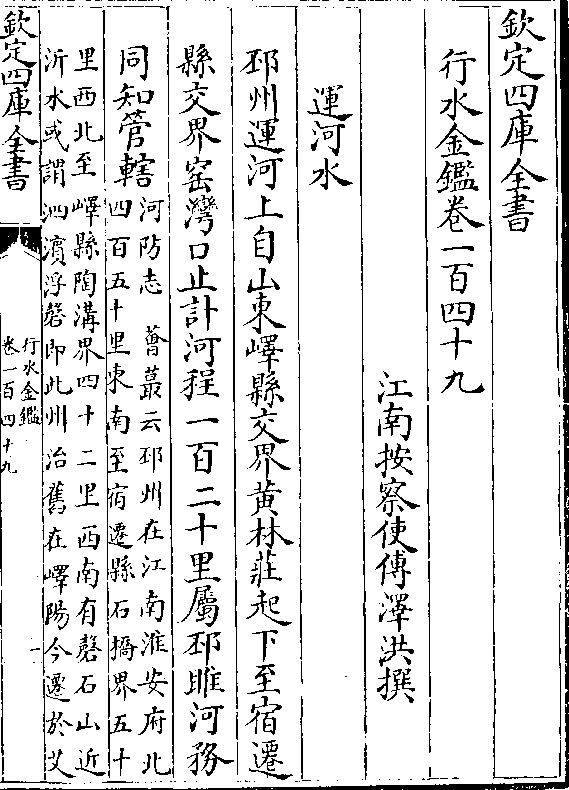 欽定四庫全書
行水金鑑卷一百四十九
江南按察使傅澤洪撰
運河水
邳州運河上自山東嶧縣交界黃林莊起下至宿遷
縣交界窑灣口止計河程一百二十里屬邳睢河務
同知管轄
河防志 薈蕞云邳州在江南淮安府北
四百五十里東南至宿遷縣石橋界五十
里西北至嶧縣陶溝界四十二里西南有磬石山近
沂水或謂泗濱浮磬即此州治舊在嶧陽今遷於艾
欽定四庫全書
行水金鑑
卷一百四十九
一